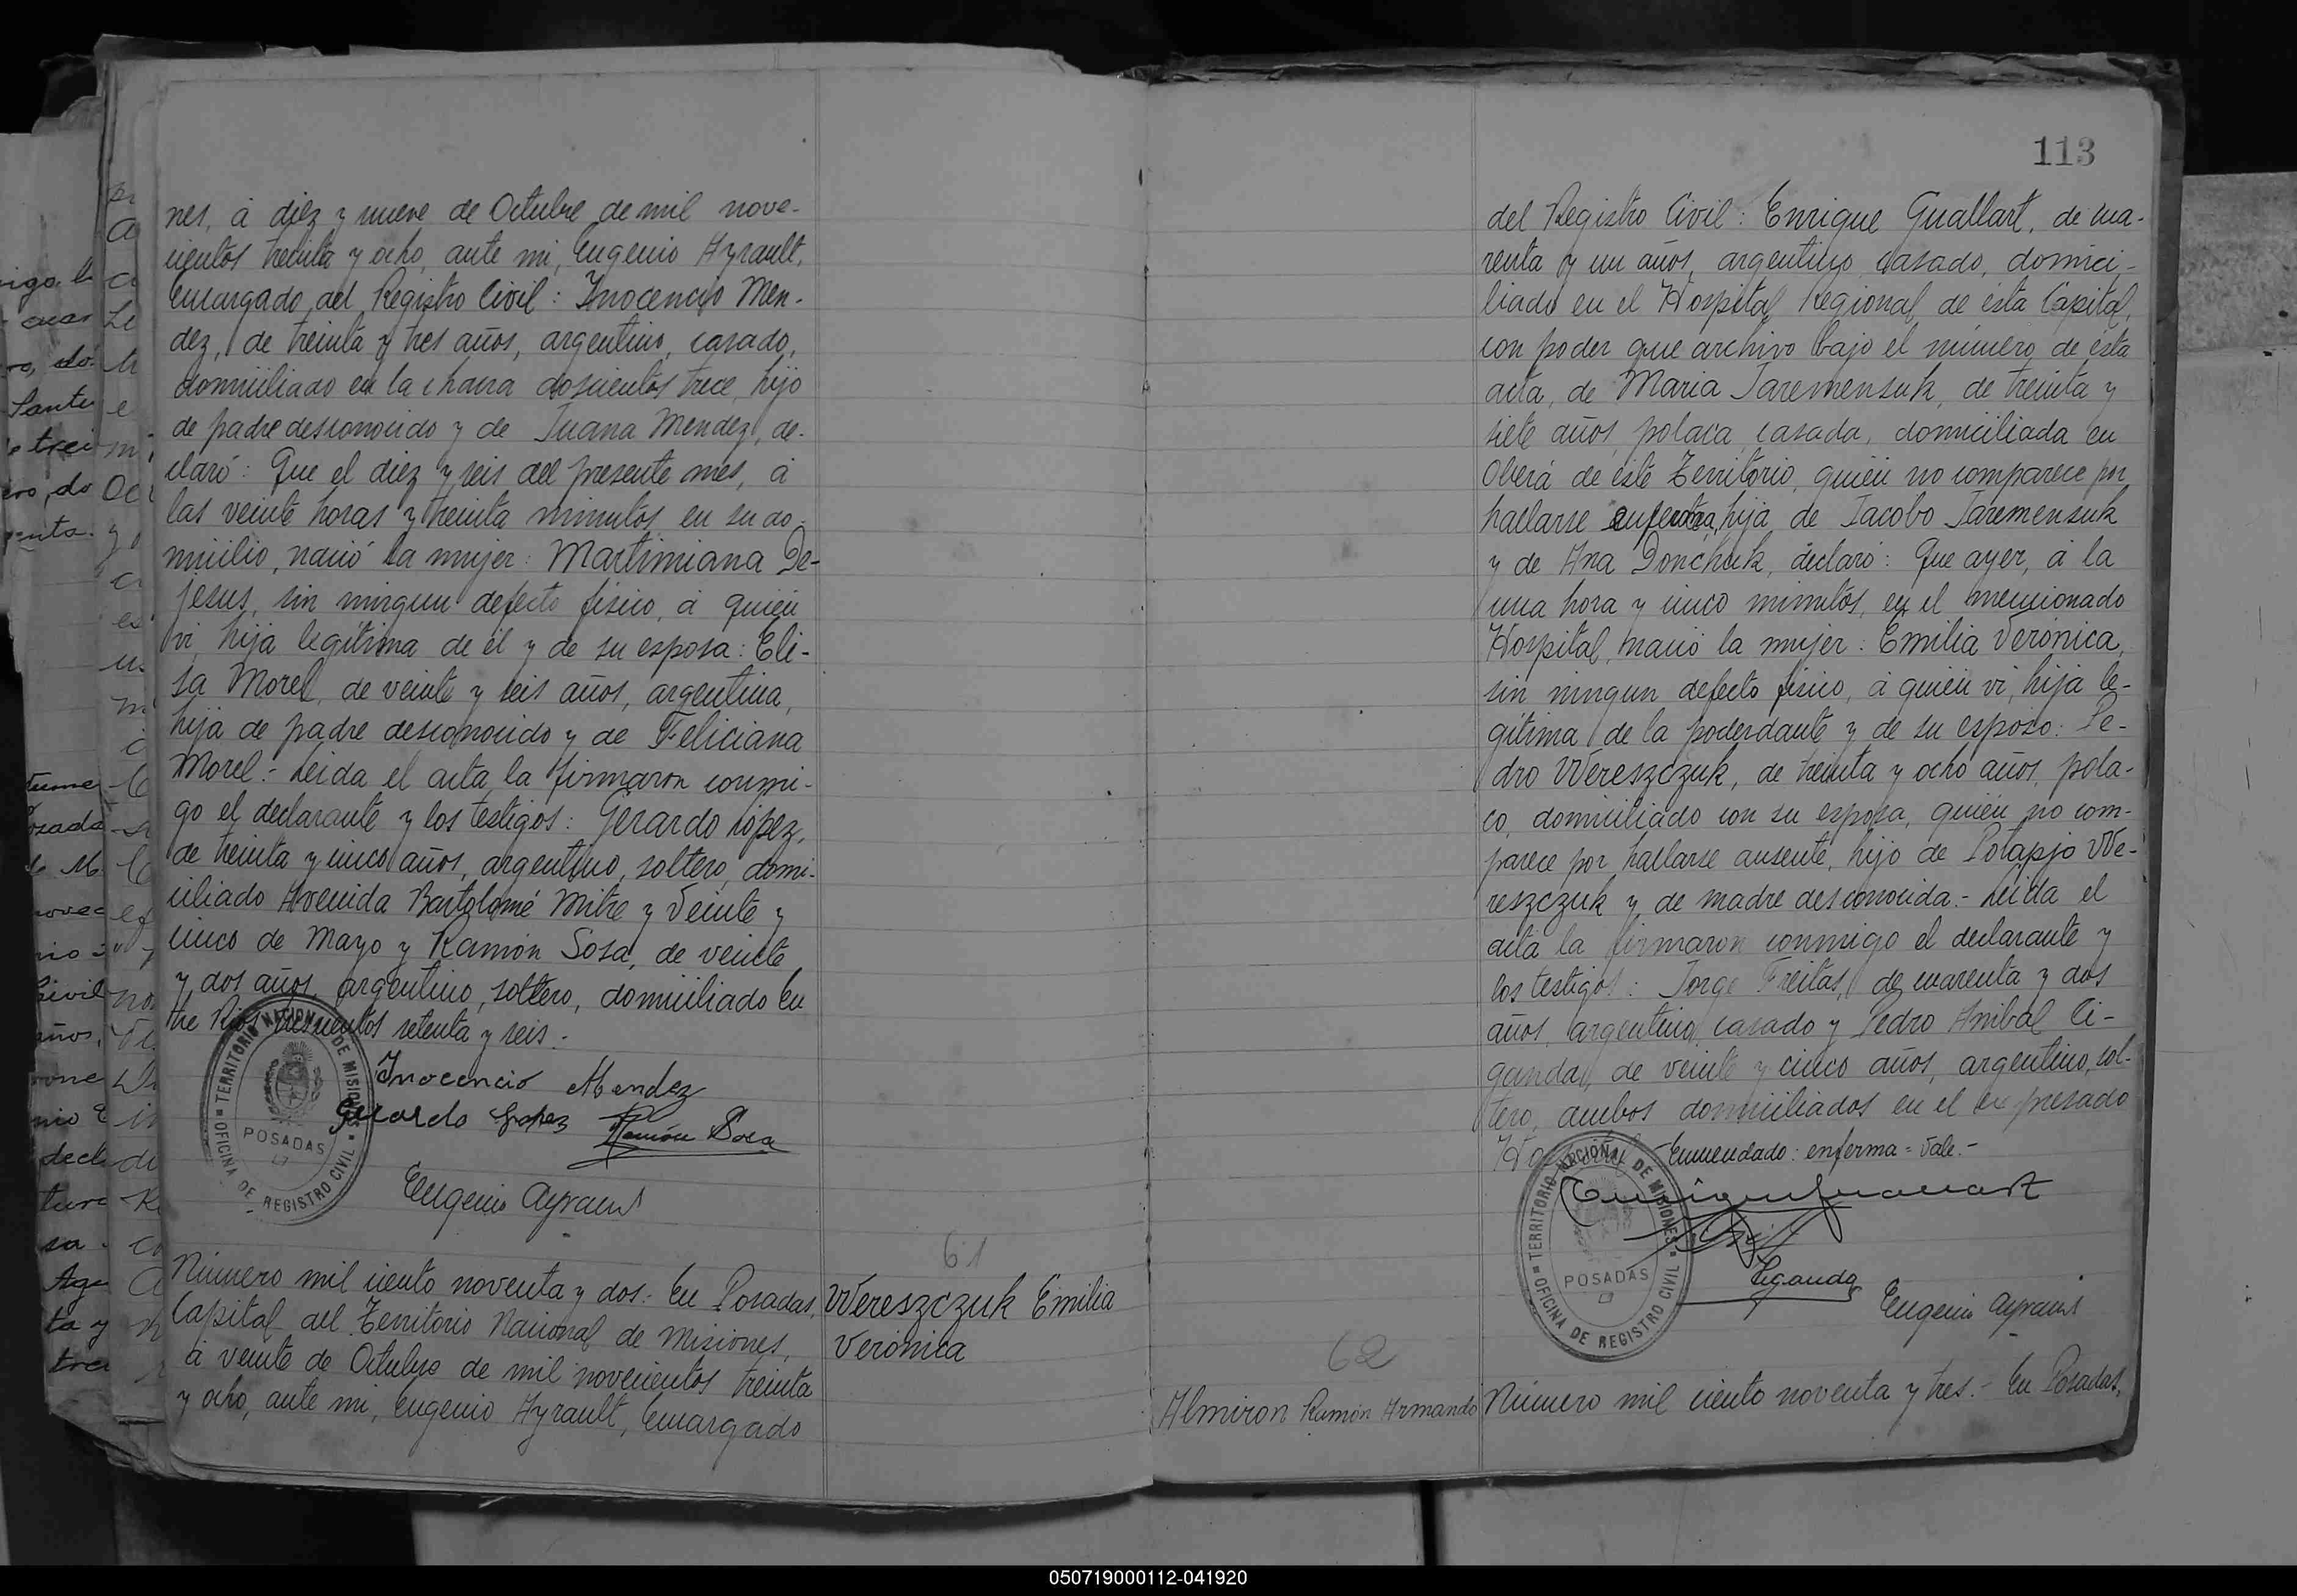 nes, á diez y nueve de Octubre de mil nove-
cientos treinta y ocho, ante mi, Eugenio Ayrault,
Encargado del Registro Civil: Inocencio Men-
dez, de treinta y tres años, argentino, casado,
domiciliado en la chacra doscientos trece, hijo
de padre desconocido y de Juana Mendez, de-
claró: Que el diez y seis del presente mes, á
las veinte horas y treinta minutos, en su do-
micilio, nació la mujer: Martimiana De-
jesus, sin ningun defecto fisico, á quién
vi, hija legitima de él y de su esposa: Eli-
sa Morel, de veinte y seis años, argentina,
hija de padre desconocido y de Feliciana
Morel.- Leida el acta la firmaron conmi-
go el declarante y los testigos: Gerardo López,
de treinta y cinco años, argentino, soltero, domi-
ciliado Avenida Bartolomé Mitre y Veinte y
cinco de Mayo y Ramón Sosa, de veinte
y dos años, argentino, soltero, domiciliado En
tre Rios trescientos setenta y seis.-
Inocencio Mendez
Gerardo Lopez Ramón Sosa
Eugenio Ayrault
TERRITORIO NACIONAL DE MISIONES
POSADAS
OFICINA DE REGISTRO CIVIL
61
Número mil ciento noventa y dos.- En Posadas,
Capital del Territorio Nacional de Misiones,
á veinte de Octubre de mil novecientos treinta
y ocho, ante mi, Eugenio Ayrault, Encargado
Wereszczuk Emilia
Verónica
113
del Registro Civil: Enrique Guallart, de cua-
renta y un años, argentino, casado, domici-
liado en el Hospital Regional de ésta Capital,
con poder que archivo bajo el número de ésta
acta, de Maria Jaremensuk, de treinta y
siete años, polaca, casada, domiciliada en
Oberá de éste Territorio, quién no comparece por
hallarse enferma, hija de Jacobo Jaremensuk
y de Ana Donchuk, declaró: Que ayer, á la
una hora y cinco minutos, en el mencionado
Hospital, nació la mujer: Emilia Verónica,
sin ningun defecto fisico, á quién vi, hija le-
gitima de la poderdante y de su esposo: Pe-
dro Wereszczuk, de treinta y ocho años, pola-
co, domiciliado con su esposa, quién no com-
parece por hallarse ausente, hijo de Potapjo We-
reszczuk y de madre desconocida.- Leida el
acta la firmaron conmigo el declarante y
los testigos: Jorge Freitas, de cuarenta y dos
años, argentino, casado y Pedro Anibal Ci-
ganda, de veinte y cinco años, argentino, sol-
tero, ambos domiciliados en el expresado
Hospital.- Enmendado: enferma = Vale.-
Enrique Guallart
Ciganda
Eugenio Ayrault
TERRITORIO NACIONAL DE MISIONES
POSADAS
OFICINA DE REGISTRO CIVIL
62
Almiron Ramón Armando
Número mil ciento noventa y tres.- En Posadas,
050719000112-041920